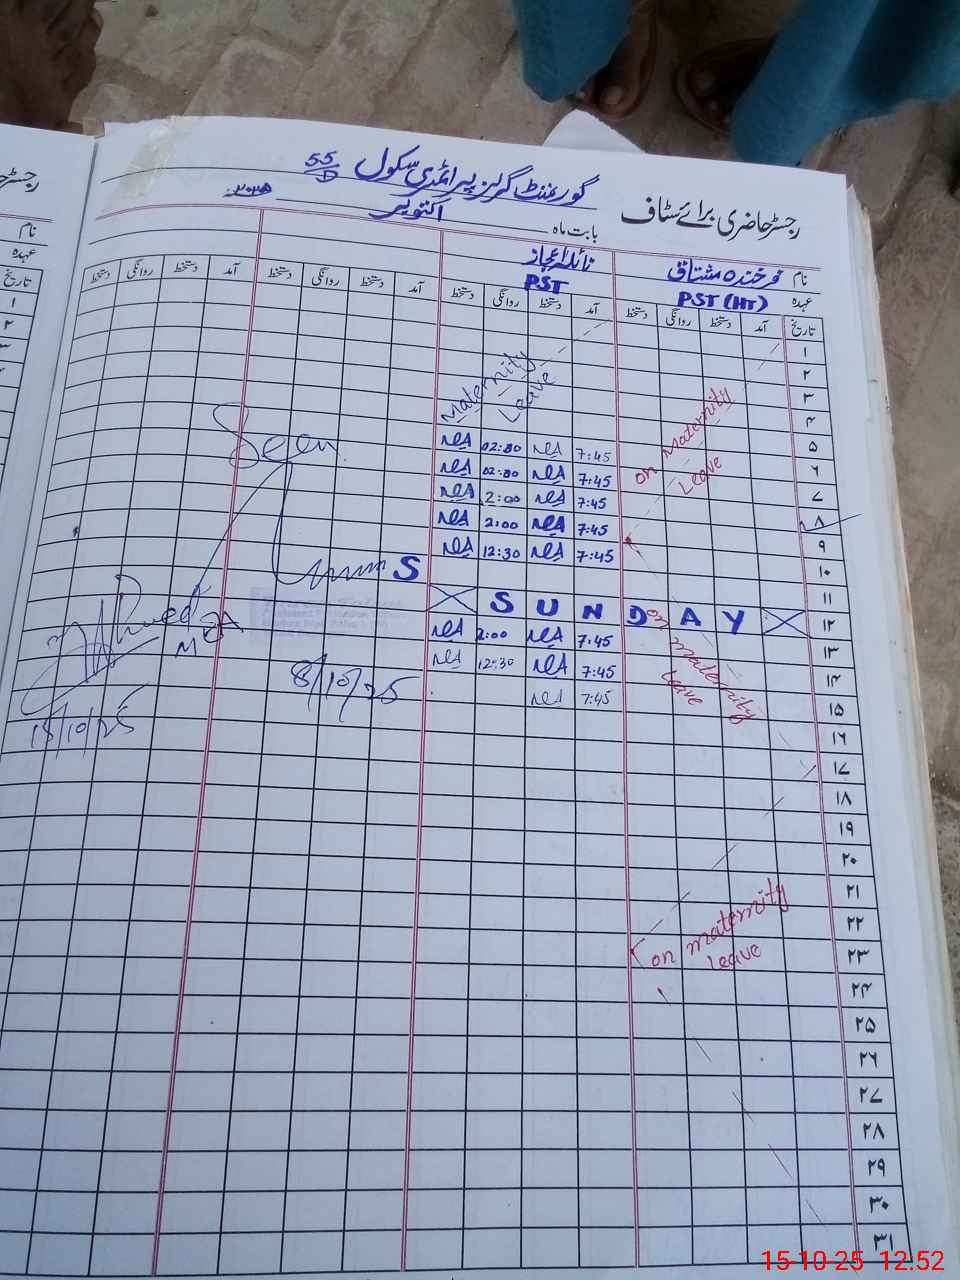 رجسٹر حاضری برائے سٹاف
گورنمنٹ گرلز پرائمری سکول 55/D
بابت ماہ اکتوبر ۲۰۲۵
نام فرخندہ مشتاق نائلہ اعجاز
عہدہ PST (HT) PST
تاریخ آمد دستخط روانگی دستخط آمد دستخط روانگی دستخط آمد دستخط روانگی دستخط آمد دستخط روانگی دستخط
۱
۲
۳
۴
Maternity
Leave
on maternity
Leave
۵
۶
۷
۸
۹
۱۰
۱۱
۱۲
۱۳
۱۴
۱۵
02:00 7:45
02:00 7:45
2:00 7:45
2:00 7:45
12:30 7:45
S U N D A Y
2:00 7:45
12:30 7:45
7:45
on maternity
leave
Seen
S
8/10/25
15/10/25
۱۶
۱۷
۱۸
۱۹
۲۰
۲۱
۲۲
۲۳
on maternity
Leave
۲۴
۲۵
۲۶
۲۷
۲۸
۲۹
۳۰
۳۱
رجسٹر
نام
عہدہ
تاریخ
۱
۲
۳
15-10-25 12:52